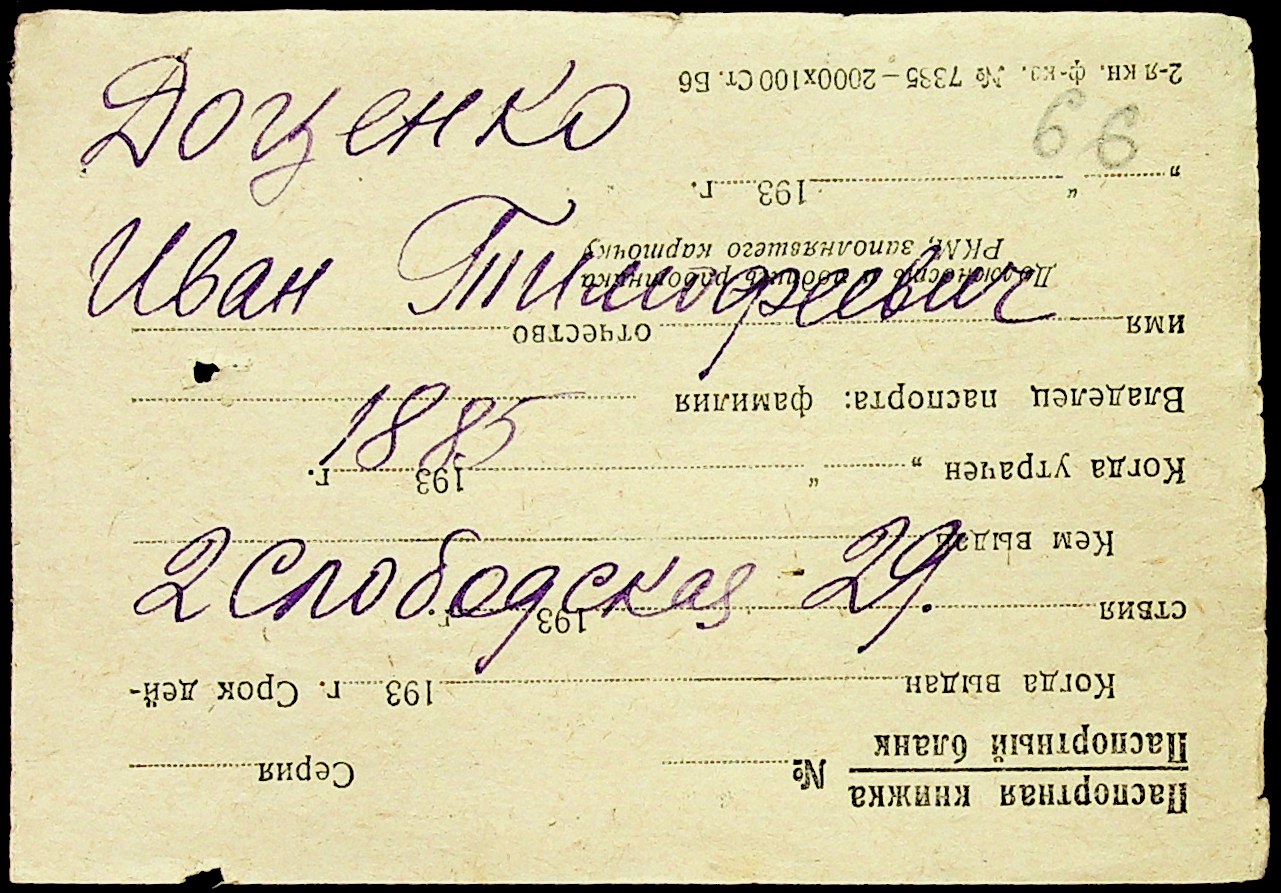 Доценко
Иван Тимофеевич
1885
2 Слободская - 29.
66
Паспортная книжка
Паспортный бланк
№ Серия
Когда выдан 193 г. Срок дей-
ствия 193 г.
Кем выдан
Когда утрачен „ “ 193 г.
Владелец паспорта: фамилия
имя отчество
Должность и подпись работника
РКМ, заполнявшего карточку
„ “ 193 г.
2-я кн. ф-ка. № 7385—2000х100 Ст. Б6